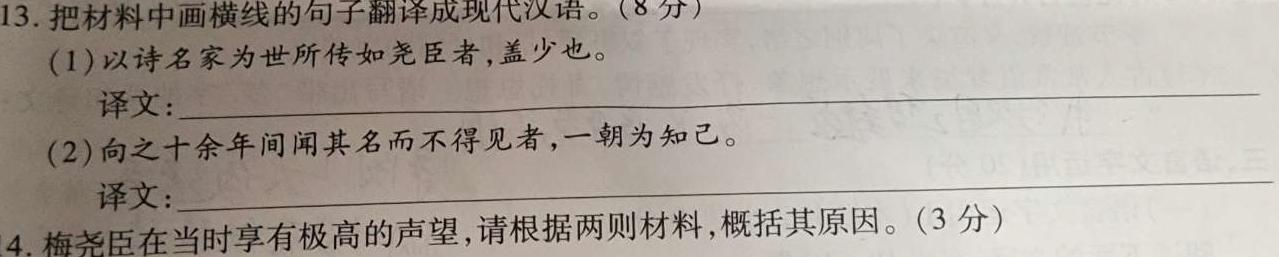 13. 把材料中画横线的句子翻译成现代汉语。(8分)
(1)以诗名家为世所传如尧臣者,盖少也。
译文:
(2)向之十余年间闻其名而不得见者,一朝为知己。
译文:
4. 梅尧臣在当时享有极高的声望,请根据两则材料,概括其原因。(3分)